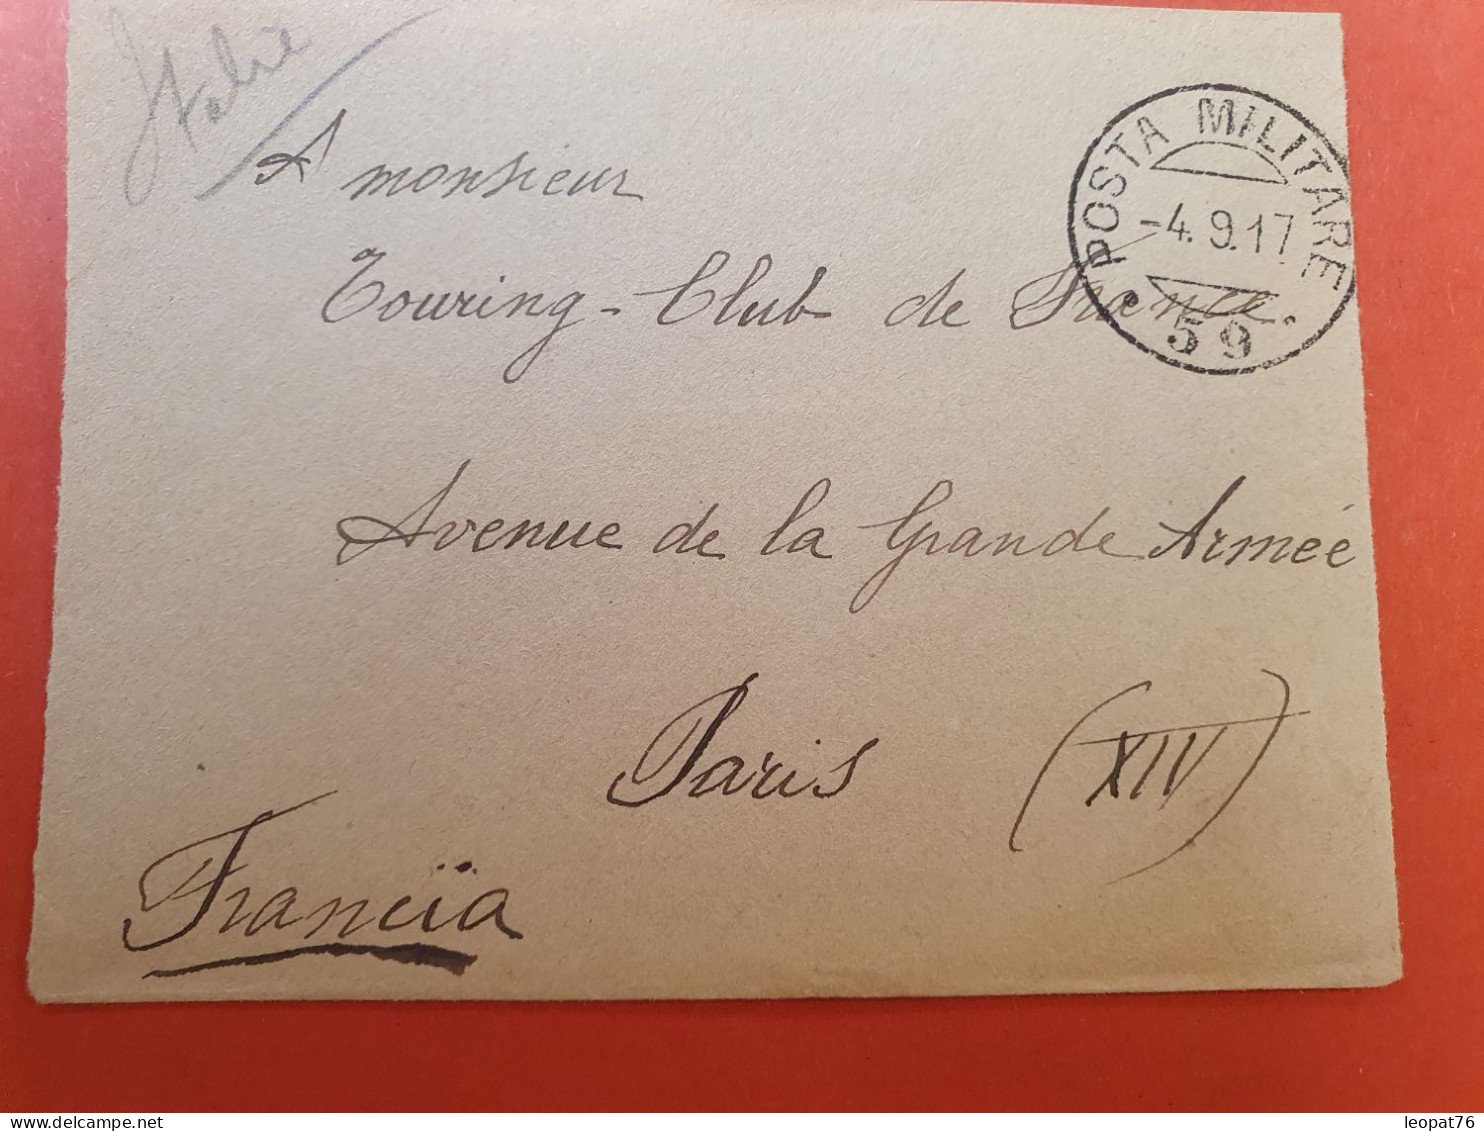 Italie
POSTA MILITARE
-4.9.17
59
A monsieur
Touring-Club de France
Avenue de la Grande Armée
Paris (XIV)
Francïa
delcampe.net
leopat76